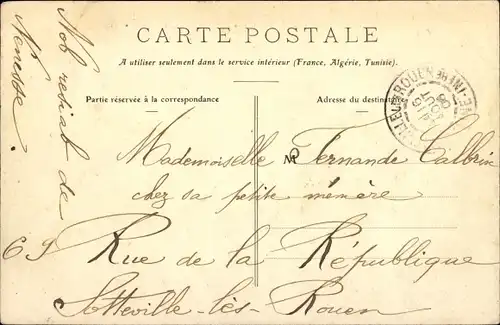 CARTE POSTALE
A utiliser seulement dans le service intérieur (France, Algérie, Tunisie).
Partie réservée à la correspondance
Adresse du destinataire
Mademoiselle Fernande Calbrix
chez sa petite mémère
69 Rue de la République
Sotteville-lès-Rouen
de
Nénesse.
ROUEN